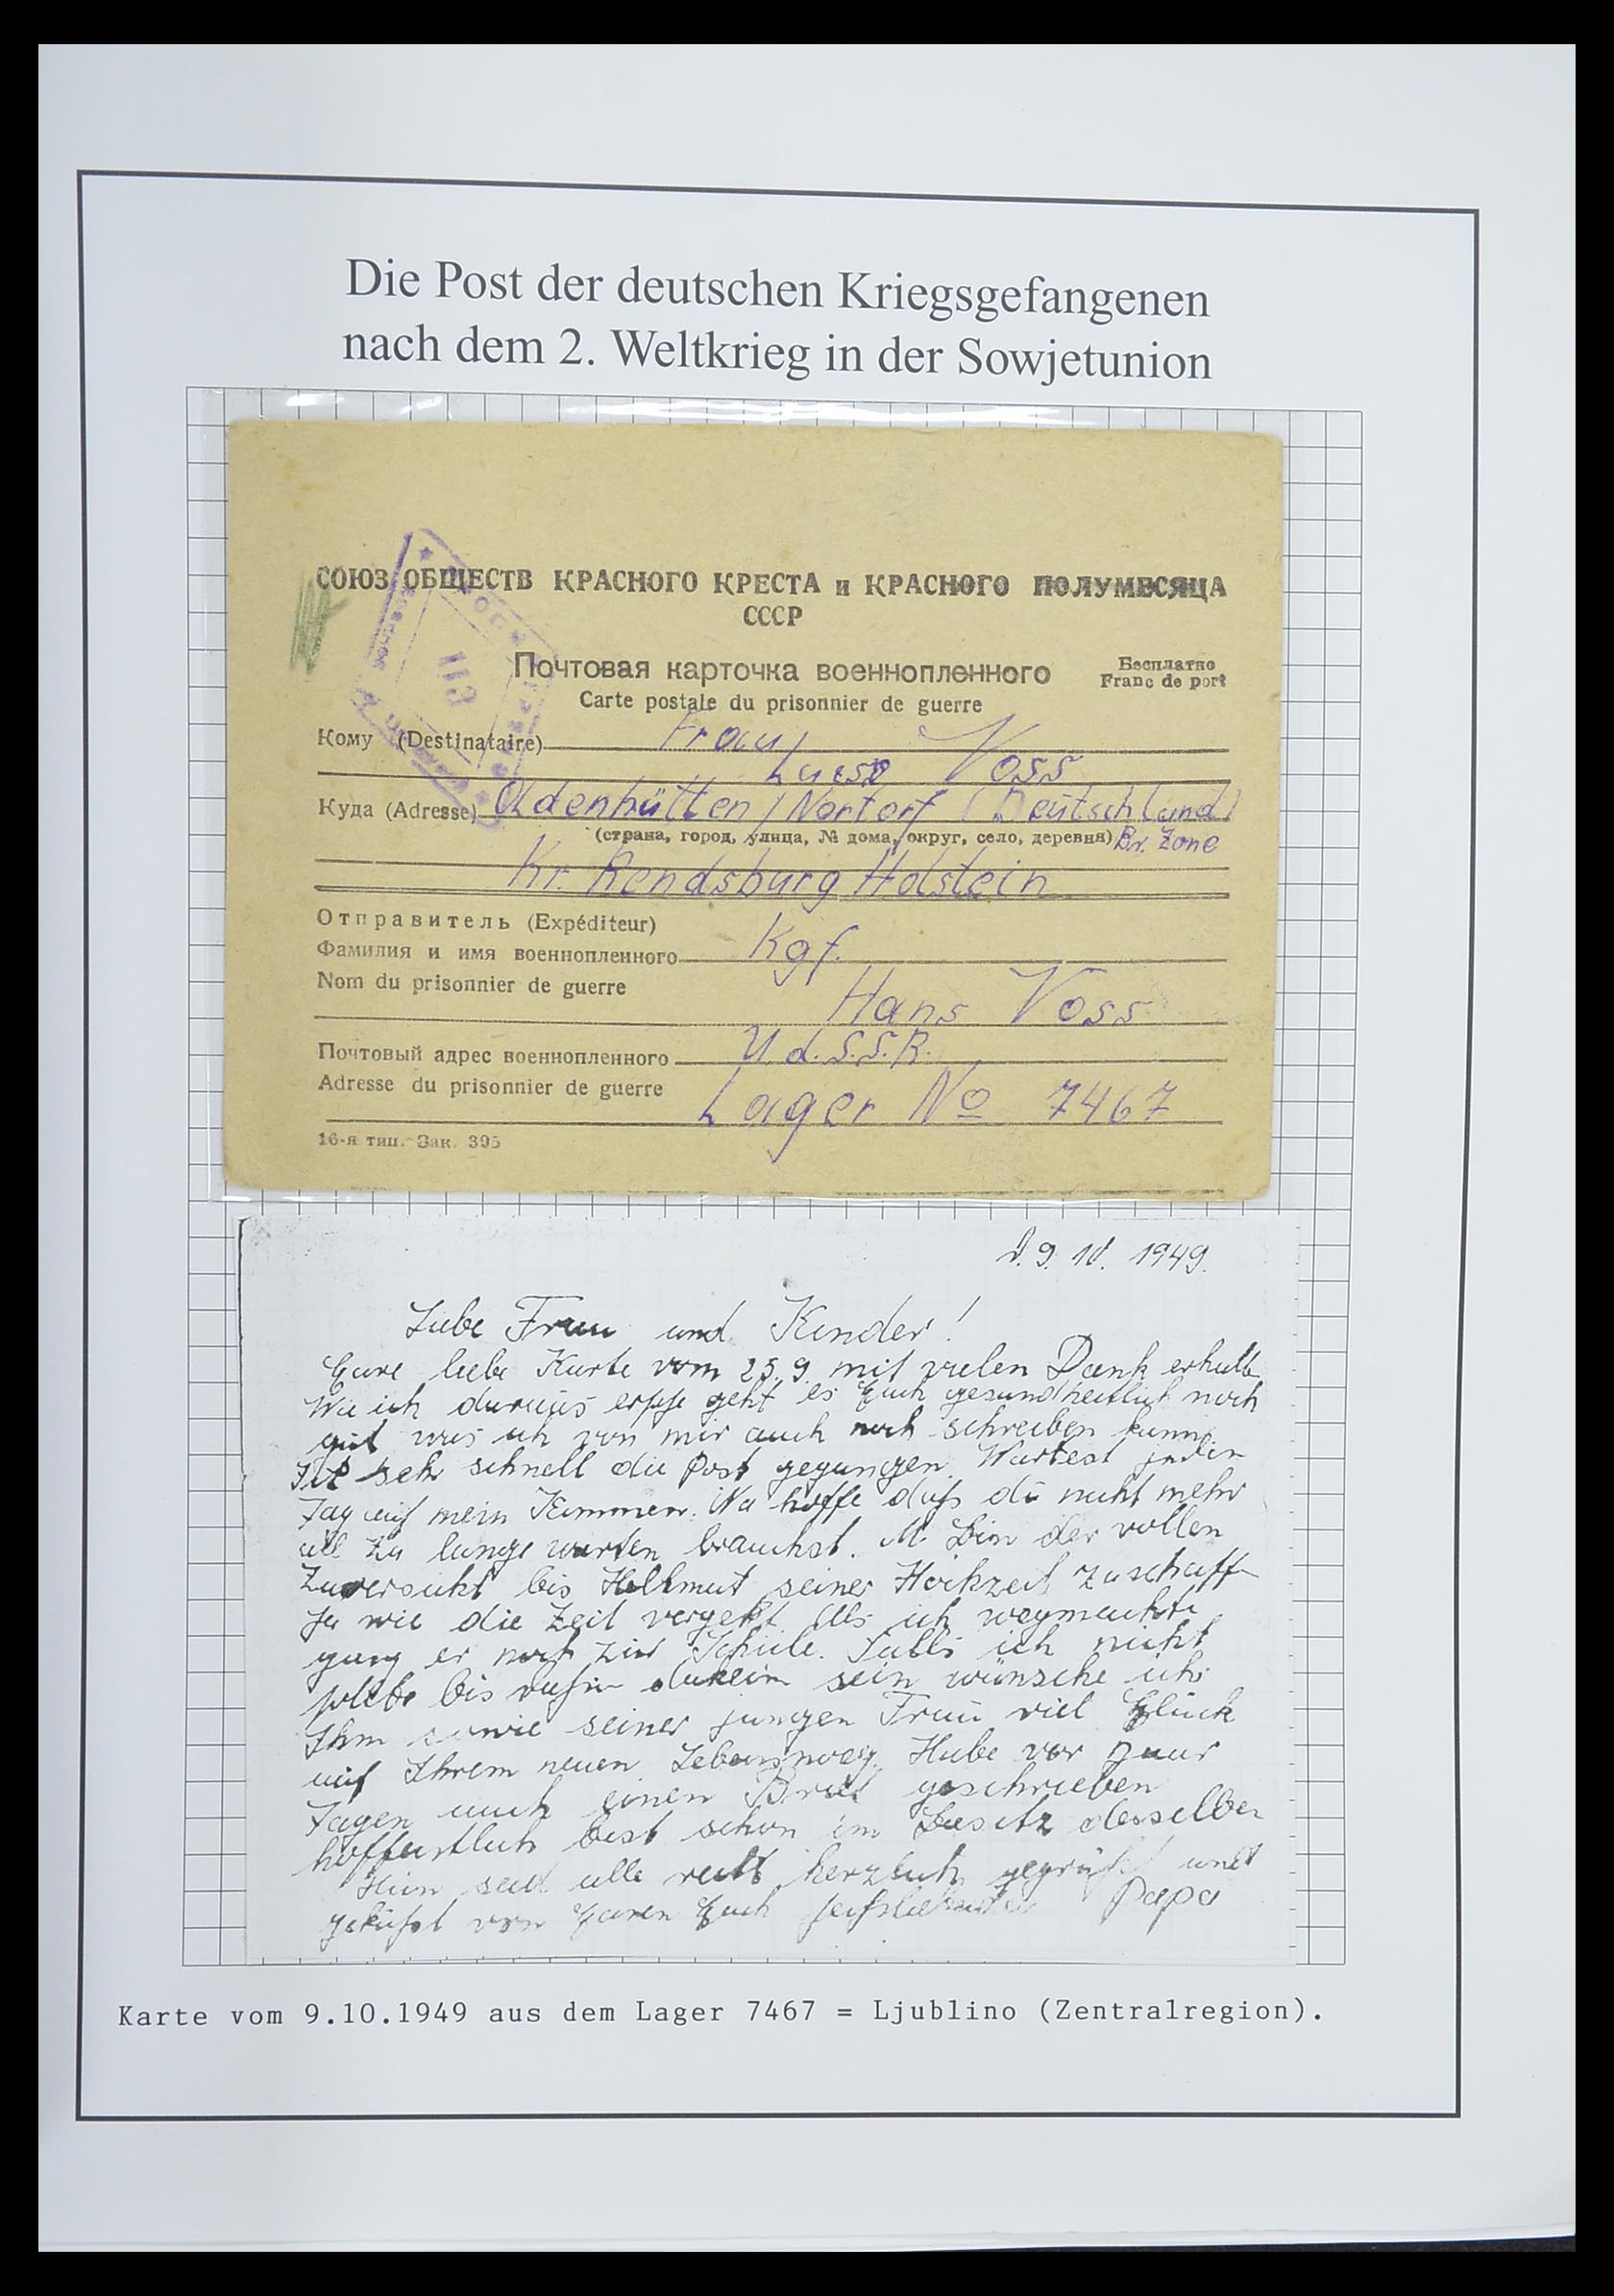 Die Post der deutschen Kriegsgefangenen
nach dem 2. Weltkrieg in der Sowjetunion
СОЮЗ ОБЩЕСТВ КРАСНОГО КРЕСТА и КРАСНОГО ПОЛУМЕСЯЦА
СССР
113
Почтовая карточка военнопленного
Бесплатно
Franc de port
Carte postale du prisonnier de guerre
Кому (Destinataire) Frau
Voss
Куда (Adresse) Oldenhütten / Nortorf (Deutschland)
(страна, город, улица, № дома, округ, село, деревня) Br. Zone
Kr. Rendsburg Holstein
Отправитель (Expéditeur)
Фамилия и имя военнопленного Kgf.
Nom du prisonnier de guerre
Hans Voss
Почтовый адрес военнопленного U.d.S.S.R.
Adresse du prisonnier de guerre Lager No 7467
16-я тип. Зак. 395
d. 9. 10. 1949.
Liebe Frau und Kinder!
Eure liebe Karte vom 25.9. mit vielen Dank
Wie ich daraus geht es Euch gesundheitlich noch
gut was ich von mir auch noch schreiben kann.
Ist sehr schnell die Post gegangen. Wartest jeden
Tag auf mein Kommen. Na hoffe daß du nicht mehr
all zu lange warten brauchst. Bin der vollen
Zuversicht bis Hellmut seiner Hochzeit
Ja wie die Zeit vergeht. Als ich wegmachte
ging er noch zur Schule. Falls ich nicht
sollte bis daheim sein wünsche ich
Ihm sowie seiner jungen Frau viel Glück
auf Ihrem neuen Lebensweg. Habe vor paar
Tagen auch einen Brief geschrieben
hoffentlich bist schon im Besitz desselben
Nun seid alle recht herzlich gegrüßt und
geküßt von Euren Euch Papa
Karte vom 9.10.1949 aus dem Lager 7467 = Ljublino (Zentralregion).